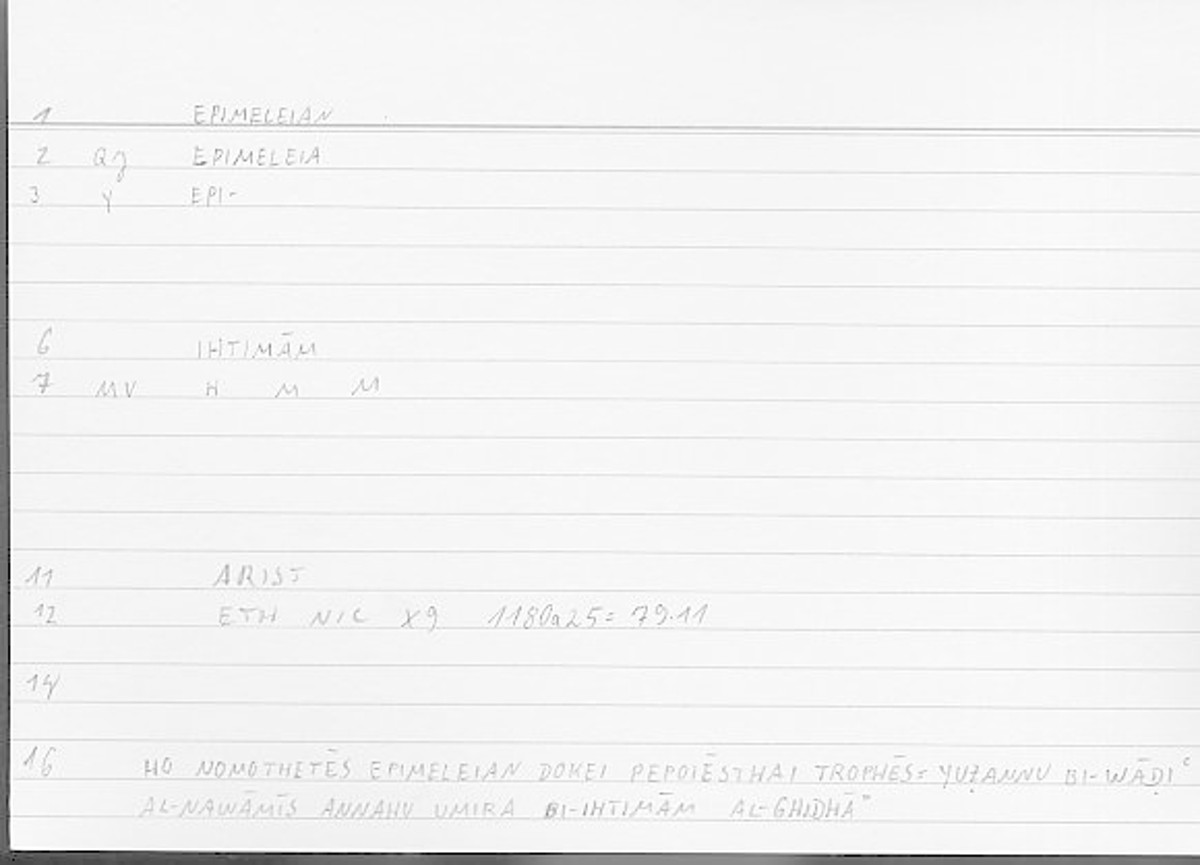 1 EPIMELEIAN
2 Qg EPIMELEIA
3 Y EPI-
6 IHTIMĀM
7 MV H M M
11 ARIST
12 ETH NIC X9 1180a25= 79.11
14
16 HO NOMOTHETĒS EPIMELEIAN DOKEI PEPOIĒSTHAI TROPHĒS= YUẒANNU BI-WĀḌIʿ
AL-NAWĀMĪS ANNAHU UMIRA BI-IHTIMĀM AL-GHIDHĀʾ